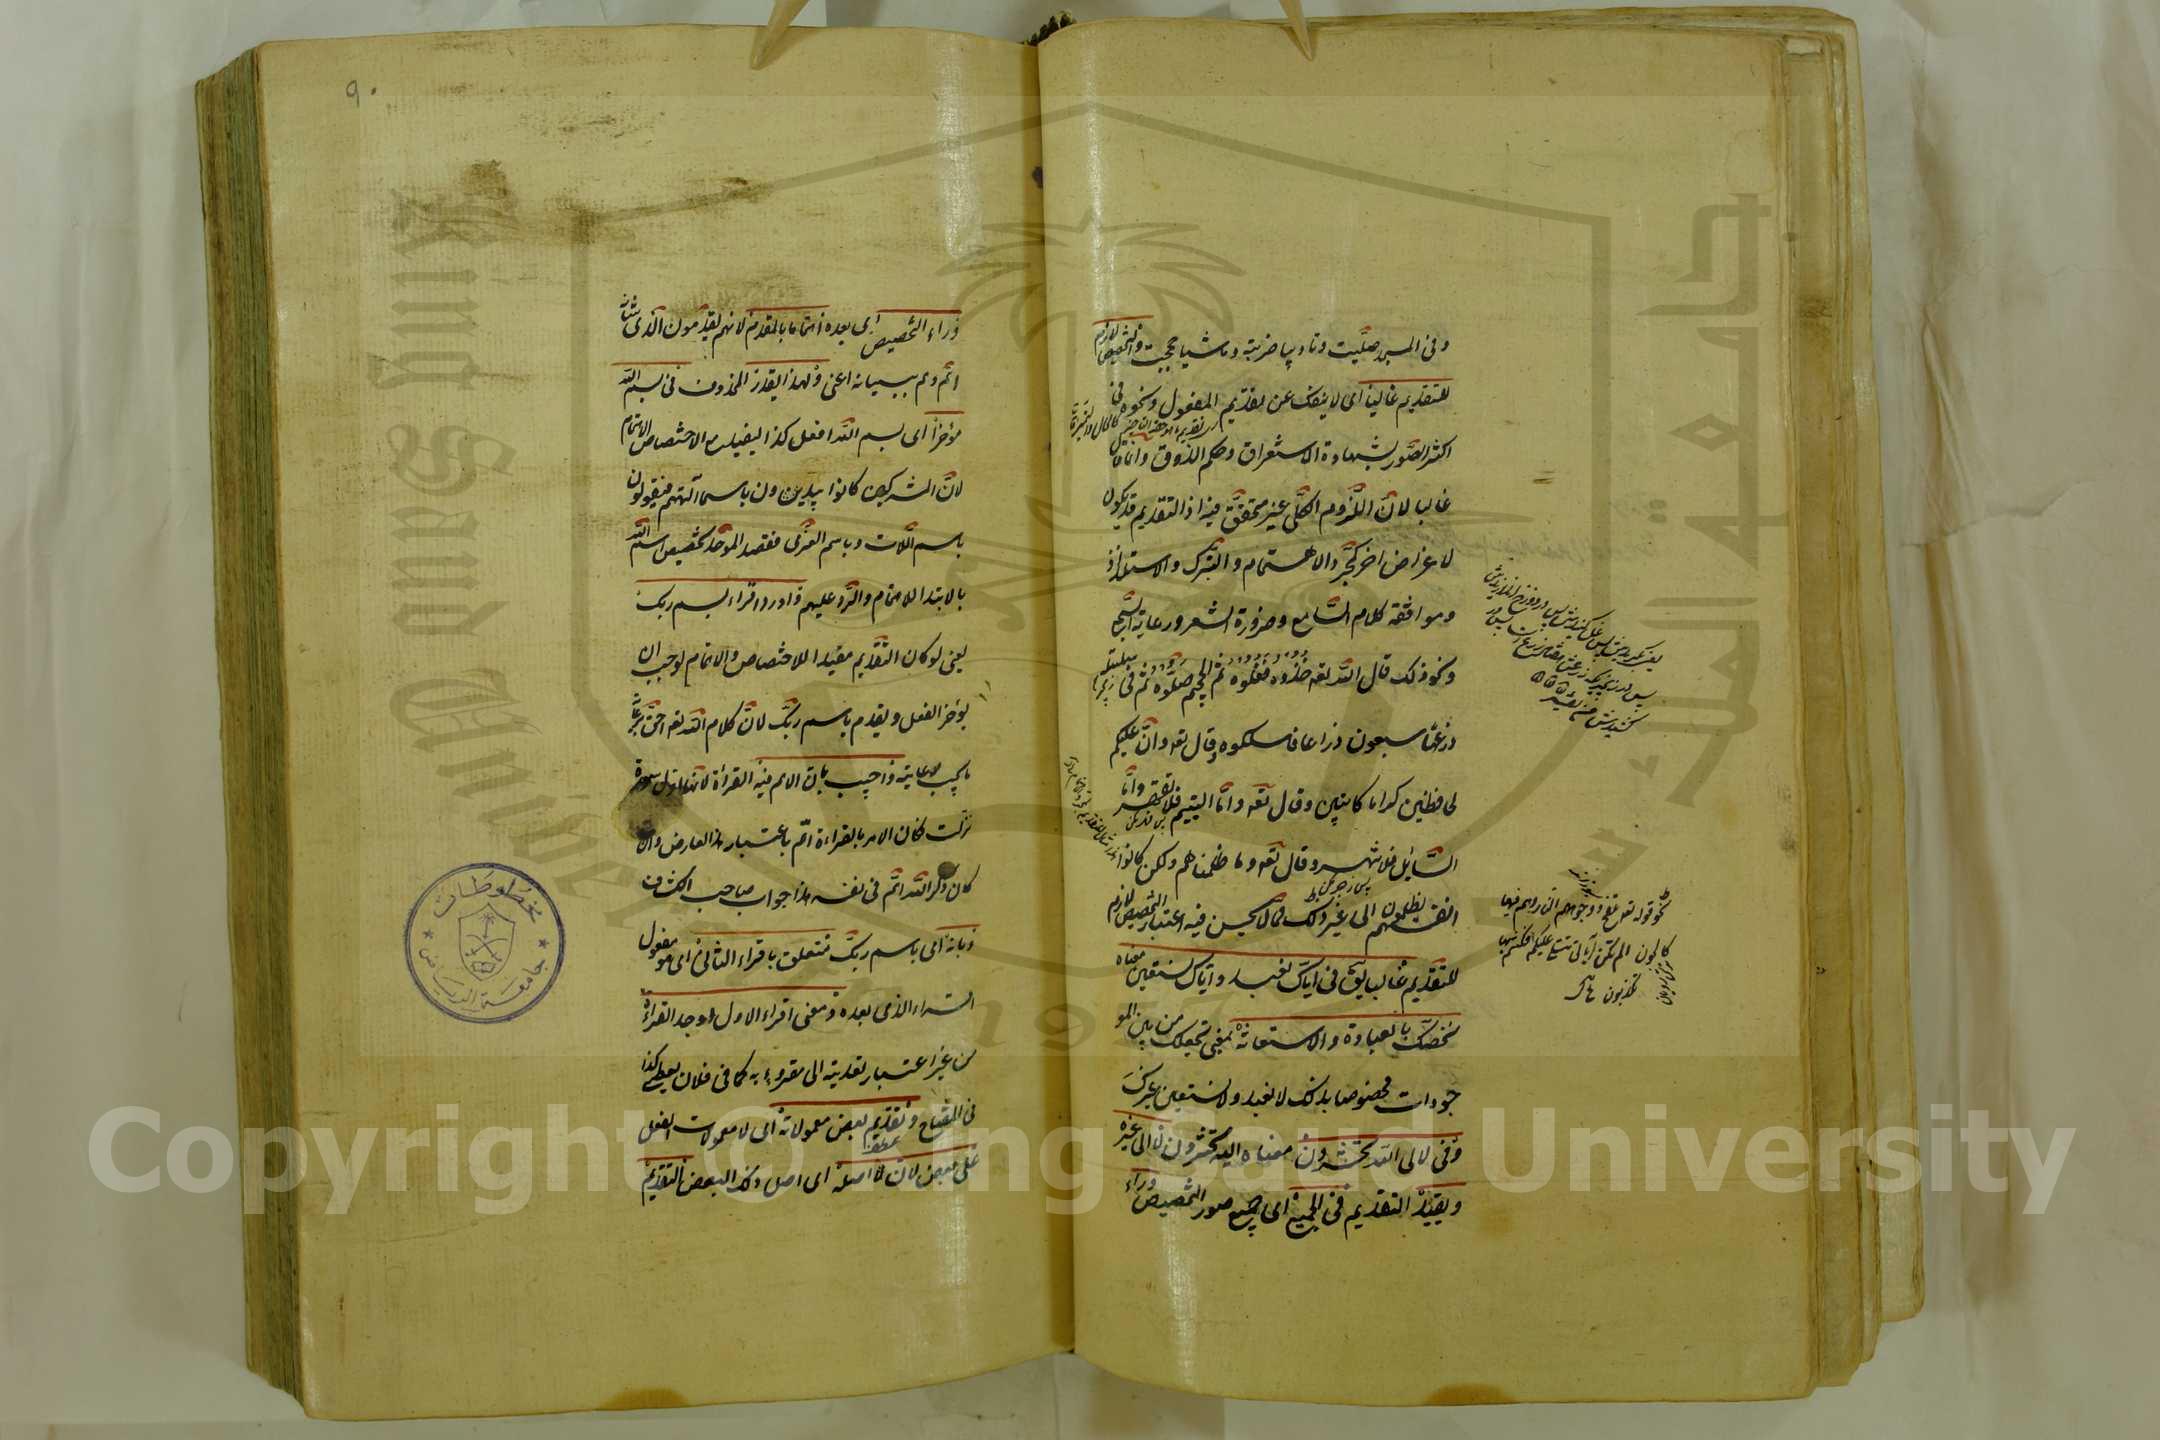 وفى المسجد صليت وتاديبا ضربته وماشيا حججت والتخصيص لازم
للتقديم غالبا اى لا ينفك عن تقديم المفعول ونحوه فى
اكثر الصور بشهادة الاستقراء وحكم الذوق وانما قال
غالبا لان اللزوم الكلى غير متحقق فيه اذ التقديم قد يكون
لاغراض اخر كمجرد الاهتمام والتبرك والاستلذاذ
وموافقة كلام السامع وضرورة الشعر ورعاية السجع
ونحو ذلك قال الله تعه خذوه فغلوه ثم الجحيم صلوه ثم فى سلسلة
ذرعها سبعون ذراعا فاسلكوه وقال تعه وان عليكم
لحافظين كراما كاتبين وقال تعه واما اليتيم فلا تقهر واما
السائل فلا تنهر وقال تعه وما ظلمناهم ولكن كانوا
انفسهم يظلمون الى غير ذلك مما لا يحسن فيه اعتبار التخصيص
للتقديم غالبا يق فى اياك نعبد واياك نستعين معناه
نخصك بالعبادة والاستعانة بمعنى نجعلك من بين المو
جودات مخصوصا بذلك لا نعبد ولا نستعين غيرك
وفى لالى الله تحشرون معناه اليه تحشرون لا الى غيره
ويفيد التقديم فى الجميع اى جميع صور التخصيص وراء
نحو قوله تعه تلفح وجوههم النار وهم فيها
كالحون الم تكن آياتى تتلى عليكم فكنتم بها
تكذبون
٩٠
وراء التخصيص اى بعده اهتماما بالمقدم لانهم يقدمون الذى شانه
اهم وهم ببيانه اعنى ولهذا يقدر المحذوف فى بسم الله
مؤخرا اى بسم الله افعل كذا ليفيد مع الاختصاص الاهتمام
لان المشركين كانوا يبدؤن باسماء آلهتهم فيقولون
باسم اللات وباسم العزى فقصد الموحد تخصيص اسم الله
بالابتداء للاهتمام والرد عليهم واورد اقراء بسم ربك
يعنى لو كان التقديم مفيدا للاختصاص والاهتمام لوجب ان
يؤخر الفعل ويقدم باسم ربك لان كلام الله تعه احق برعاية
ما يجب رعايته واجيب بان الاهم فيه القراءة لانها اول سورة
نزلت فكان الامر بالقراءة اهم باعتبار هذا العارض وان
كان ذكر الله اهم فى نفسه هذا جواب صاحب الكشاف
وبانه اى باسم ربك متعلق باقراء الثانى اى هو مفعول
اقراء الذى بعده ومعنى اقراء الاول اوجد القراءة
من غير اعتبار تعديته الى مقروء به كما فى فلان يعطى كذا
فى المفتاح وتقديم بعض معمولاته اى لا معمولات الفعل
على بعض لان اصله اى اصل ذلك البعض التقديم
مخطوطات
جامعة الرياض
جامعة الملك سعود
King Saud University
1957
Copyright © King Saud University